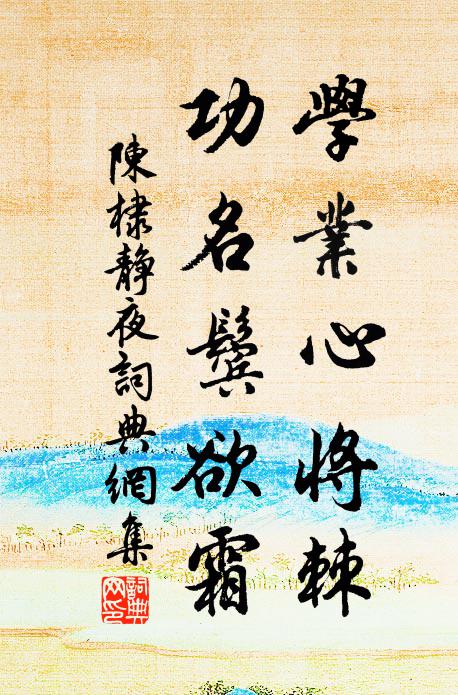 學業心將棘
功名鬢欲霜
陳棣靜夜詞典網集